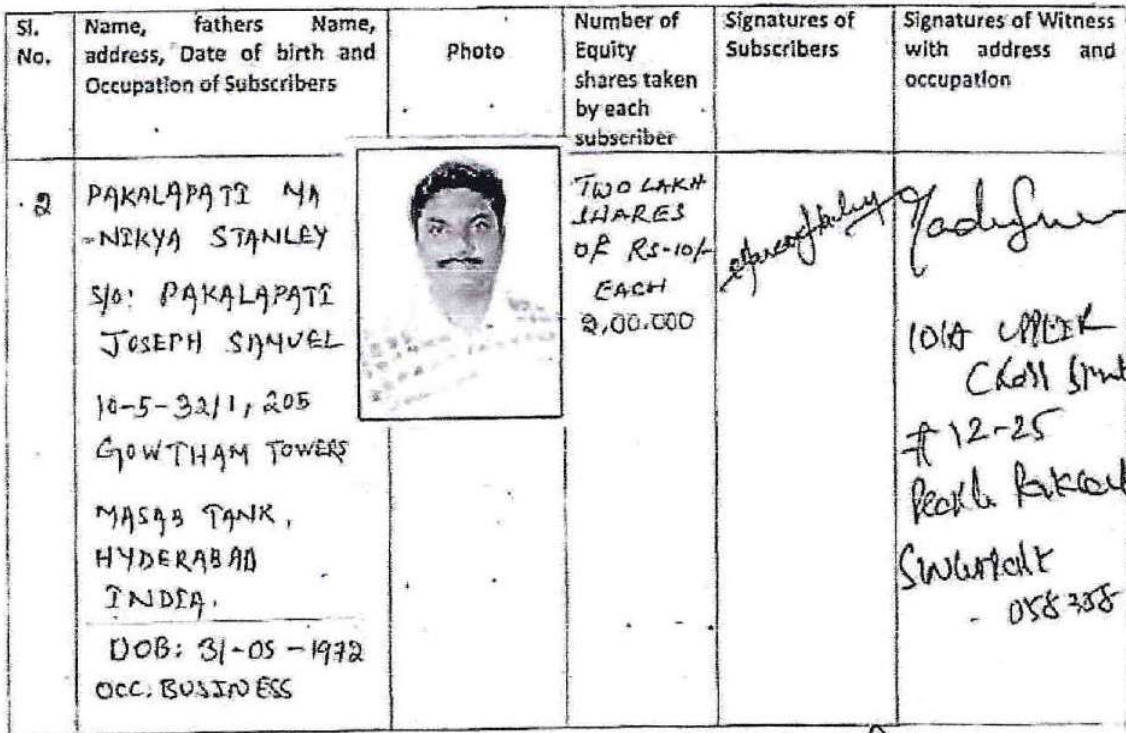 Sl. No.
Name, fathers Name, address, Date of birth and Occupation of Subscribers
Photo
Number of Equity shares taken by each subscriber
Signatures of Subscribers
Signatures of Witness with address and occupation
2
PAKALAPATI MA
-NIKYA STANLEY
S/o: PAKALAPATI
JOSEPH SAMUEL
10-5-32/1, 205
GOWTHAM TOWERS
MASAB TANK,
HYDERABAD
INDIA.
DOB: 31-05-1972
OCC. BUSINESS
TWO LAKH
SHARES
OF RS-10/-
EACH
2,00,000
101A UPPER
Cross
#12-25
058358